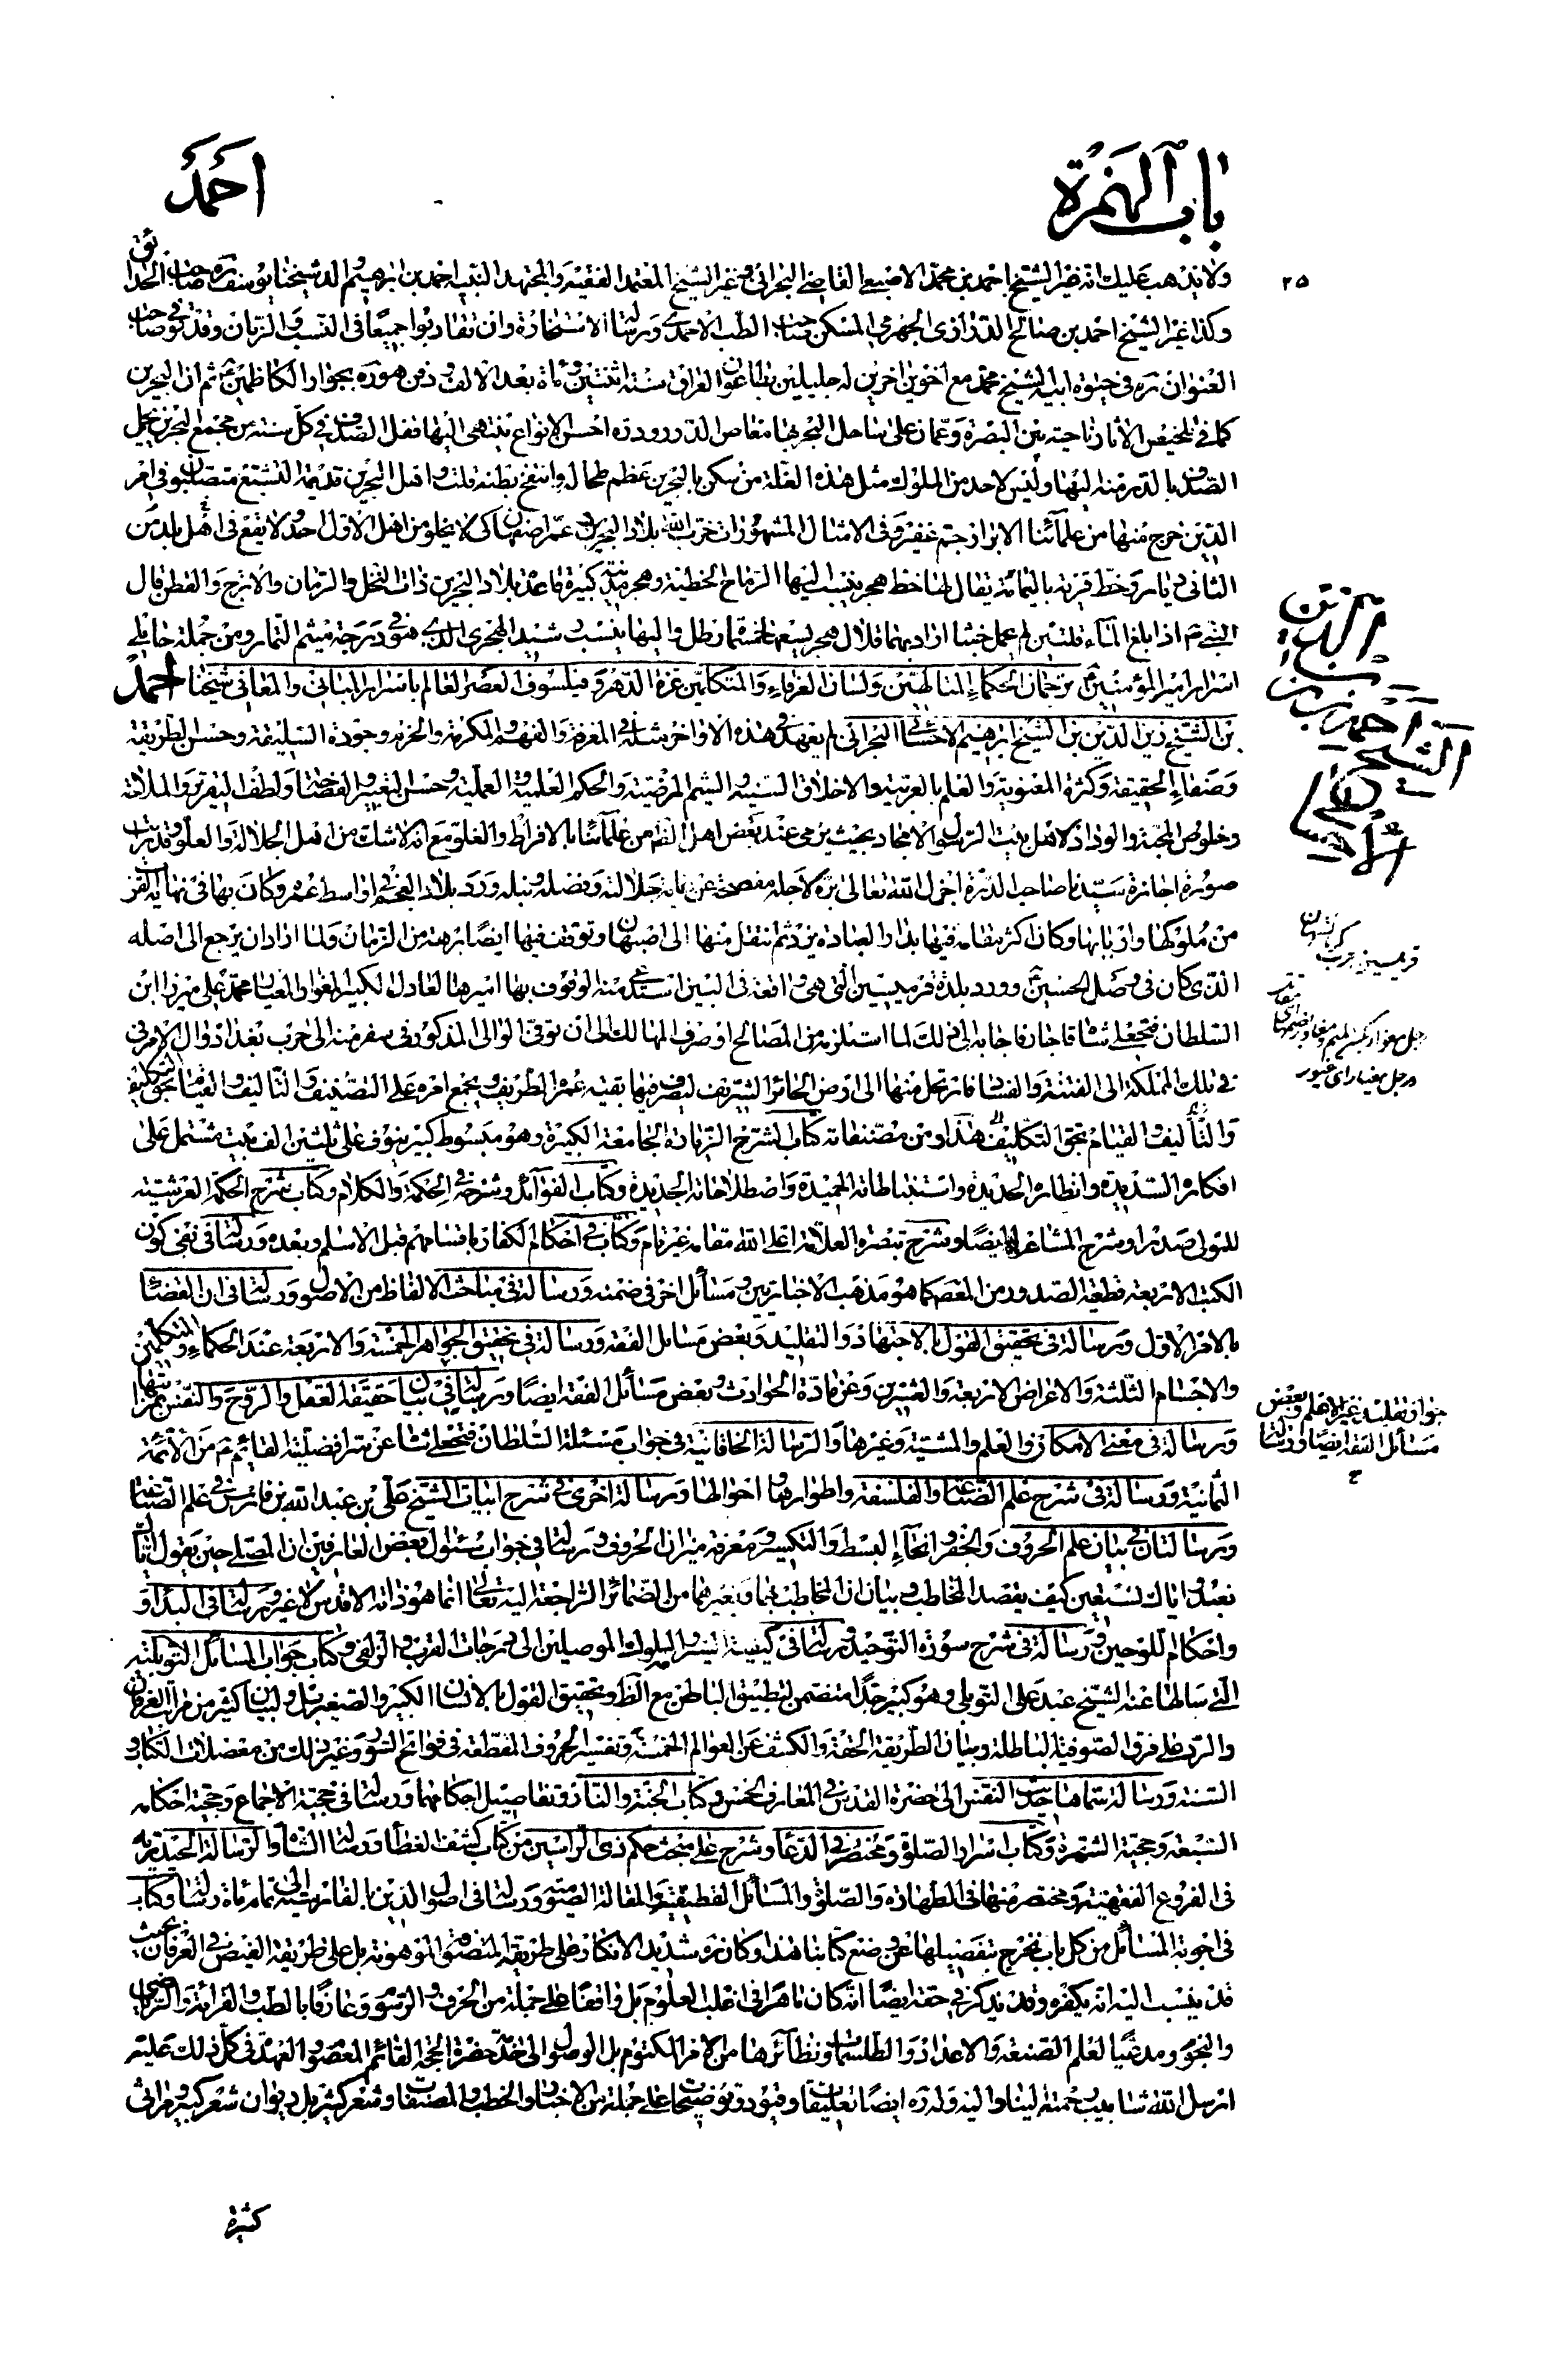 باب الهمزة
احمد
٢٥
ولا يذهب عليك انه غير الشيخ احمد بن محمد الاصبعي القاضي البحراني وغير الشيخ المعتمد الفقيه والمجتهد النبيه احمد بن ابرهيم والد شيخنا يوسف ره صاحب الحدائق
وكذا غير الشيخ احمد بن صالح الدرازي الجهرمي المسكن صاحب الطب الاحمدي ورسالة الاستخارة وان تقاربوا جميعا في النسب والزمان وقد توفي صاحب
العنوان ره في حيوة ابيه الشيخ محمد مع اخوين اخرين له جليلين بطاعون العراق سنة اثنتين ومأة بعد الالف ودفن هو ره بجوار الكاظمين ع ثم ان البحرين
كما في تلخيص الآثار ناحية بين البصرة وعمان على ساحل البحر بها مغاص الدر ودره احسن الانواع ينتهى اليها قفل الصدف في كل سنة من مجمع البحرين يحمل
الصدف بالدر منه اليها وليس لاحد من الملوك مثل هذه الغلة من سكن بالبحرين عظم طحاله وانتفخ بطنه قلت واهل البحرين قديمة التشيع متصلبون في امر
الدين خرج منها من علمآئنا الابرار جم غفير وفي الامثال المشهور ان خرب الله بلاد البحرين وعمر اصفهان كى لا يخلو من اهل الاول احد ولا يقع في اهل بلد من
الثاني ديار وخط قرية باليمامة يقال لها خط هجر ينسب اليها الرماح الخطية وهجر مدينة كبيرة قاعدة بلاد البحرين ذات النخل والرمان والاترج والقطن قال
النبي م اذا بلغ المآء قلتين لم يحمل خبثا اراد بهما قلال هجر يسعها خمسمأة رطل واليها ينسب رشيد الهجرى الذي هو في درجة ميثم التمار ومن جملة حاملي
اسرار امير المؤمنين ع ترجمان الحكماء المتالهين ولسان العرفاء والمتكلمين غرة الدهر وفيلسوف العصر العالم باسرار المباني والمعاني شيخنا احمد
بن الشيخ زين الدين بن الشيخ ابرهيم الاحسائي البحراني لم يعهد في هذه الاواخر مثله في المعرفة والفهم والمكرمة والحزم وجودة السليقة وحسن الطريقة
وصفاء الحقيقة وكثرة المعنوية والعلم بالعربية والاخلاق السنية والشيم المرضية والحكم العلمية والعملية وحسن التعبير والفصاحة ولطف التقرير والملاحة
وخلوص المحبة والوداد لاهل بيت الرسول الامجاد بحيث يرمى عند بعض اهل الظاهر من علمآئنا بالافراط والغلو مع انه لا شك من اهل الجلالة والعلو وقد رايت
صورة اجازة سيدنا صاحب الدرة اجزل الله تعالى بره لاجله مفصحة عن غاية جلالته وفضله ونبله ورد بلاد العجم في اواسط عمره وكان بها في نهاية القرب
من ملوكها واربابها وكان اكثر مقامه فيها بدار العبادة يزد ثم انتقل منها الى اصبهان وتوقف فيها ايضا برهة من الزمان ولما اراد ان يرجع الى اصله
الذى كان في محضر الحسين ع وورد بلدة قرميسين التي هي واقعة في البين استدعى منه الوقوف بها اميرها العادل الكبير المغوار والغيار محمد على ميرزا ابن
السلطان فتحعلي شاه قاجار فاجابه الى ذلك لما استلزمه من المصالح او صرف المهالك الى ان توفى الوالى المذكور في سفر منه الى حرب بغداد وآل الامر في
في تلك المملكة الى الفتنة والفساد فارتحل منها الى ارض الحائر الشريف ليصرف فيها بقية عمره الطريف ويجمع امره على التصنيف والتاليف والقيام بحق التكليف
والتأليف والقيام بحق التكليف هذا ومن مصنفاته كتاب شرح الزيارة الجامعة الكبيرة وهو مبسوط كبير ينوف على ثلثين الف بيت مشتمل على
افكاره السديدة وانظاره الحديدة واستنباطاته الحميدة واصطلاحاته الجديدة وكتاب الفوآئد وشرحه في الحكمة والكلام وكتاب شرح الحكمة العرشية
للمولى صدرا وشرح المشاعر له ايضا وشرح تبصرة العلامة اعلى الله مقامه غير تام وكتاب في احكام الكفار باقسامهم قبل الاسلام وبعده ورسالة في نفى كون
الكتب الاربعة قطعية الصدور من المعصوم كما هو مذهب الاخباريين ومسائل اخر في ضمنه ورسالة في مباحث الالفاظ من الاصول ورسالة في ان القضاء
بالامر الاول ورسالة في تحقيق القول بالاجتهاد والتقليد وبعض مسائل الفقه ورسالة في تحقيق الجواهر الخمسة والاربعة عند الحكماء والمتكلمين
والاجسام الثلثة والاعراض الاربعة والعشرين وعن مادة الحوادث وبعض مسائل الفقه ايضا ورسالة في بيان حقيقة العقل والروح والنفس بمراتبها
ورسالة في معنى الامكان والعلم والمشية وغيرها والرسالة الخاقانية في جواب مسئلة السلطان فتحعلي شاه عن سر افضلية القائم م من الأئمة
الثمانية ورسالة في شرح علم الصناعة والفلسفة واطوارها واحوالها ورسالة اخرى في شرح ابيات الشيخ علي بن عبد الله بن فارس في علم الصناعة
ورسالتان في بيان علم الحروف والجفر وانحاء البسط والتكسير ومعرفة ميزان الحروف ورسالة في جواب سئوال بعض العارفين ان المصلي حين يقول اياك
نعبد واياك نستعين كيف يقصد المخاطب وبيان ان المخاطب بهما وبغيرهما من الضمائر الراجعة اليه تعالى انما هو ذاته الاقدس لا غير ورسالة في البداء و
واحكام اللوحين ورسالة في شرح سورة التوحيد ورسالة في كيفية السير والسلوك الموصلين الى درجات القرب والزلفى وكتاب جواب المسائل التوبلية
التي سالها عنه الشيخ عبد على التوبلى وهو كبير جدا متضمن لتطبيق الباطن مع الظاهر وتحقيق القول بالانسان الكبير والصغير بل ولبيان كثير من مراتب العرفان
والرد على فرق الصوفية الباطلة وبيان الطريقة الحقة والكشف عن العوالم الخمسة وتفسير الحروف المقطعة في فواتح السور وغير ذلك من معضلات الكتاب و
السنة ورسالة سماها حيوة النفس الى حضرة القدس في المعارف الخمس وكتاب الجنة والنار وتفاصيل احكامهما ورسالة في حجية الاجماع وحجية احكامه
السبعة وحجية الشهرة وكتاب اسرار الصلوة ومختصر في الدعاء وشرح على مبحث حكم ذى الراسين من كتاب كشف الغطا ورسالة الشاه والرسالة الحيدرية
في الفروع الفقهية ومختصر منها في الطهارة والصلوة والمسائل القطيفية والمقالة الصومية ورسالة في اصول الدين بالفارسية الى تمام مأة رسالة وكتاب
في اجوبة المسائل من كل باب نخرج بتفصيلها عن وضع كتابنا هذا وكان ره شديد الانكار على طريقة المتصوفة الموهونة بل على طريقة الفيض في العرفان بحيث
قد ينسب اليه انه يكفره وقد يذكر في حقه ايضا انه كان ماهرا في اغلب العلوم بل واقفا على جملة من الحرف والرسوم وعارفا بالطب والقرائة والرياضي
والنجوم ومدعيا لعلم الصنعة والاعداد والطلسمات ونظآئرها من الامر المكتوم بل الوصول الى خدمة حضرة الحجة القائم المعصوم والعهدة في كل ذلك عليه
ارسل الله شابيب رحمته الينا واليه وله ره ايضا تعليقات وقيود وتوضيحات على جملة من الاخبار والخطب والمصنفات وشعر كثير بل ديوان شعر كبير ومراثي
كثيرة
الشيخ احمد بن زين الدين الاحسائي
جواز تقليد غير الاعلم وبعض
مسائل الفقه ايضا ورسالة